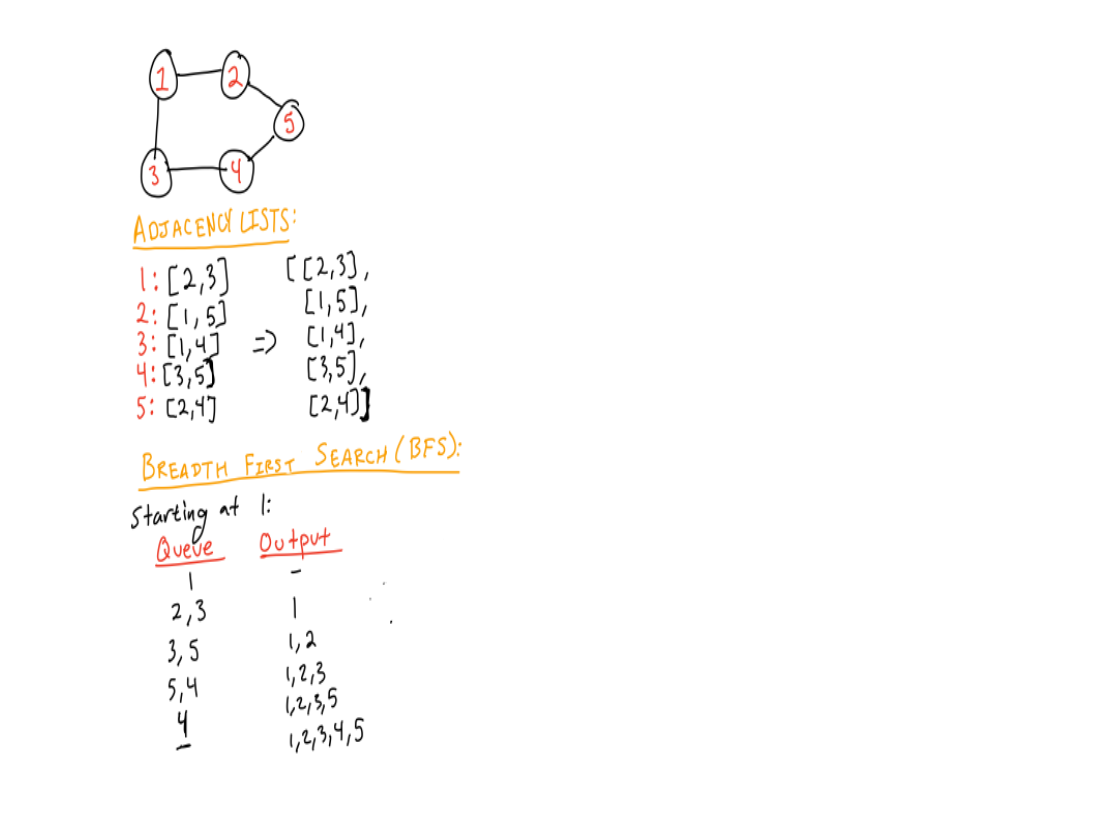 1 2
5
3 4
ADJACENCY LISTS:
1: [2,3] [[2,3],
2: [1,5] [1,5],
3: [1,4] => [1,4],
4: [3,5] [3,5],
5: [2,4] [2,4]]
BREADTH FIRST SEARCH (BFS):
Starting at 1:
Queue Output
1 –
2,3 1
3,5 1,2
5,4 1,2,3
4 1,2,3,5
– 1,2,3,4,5